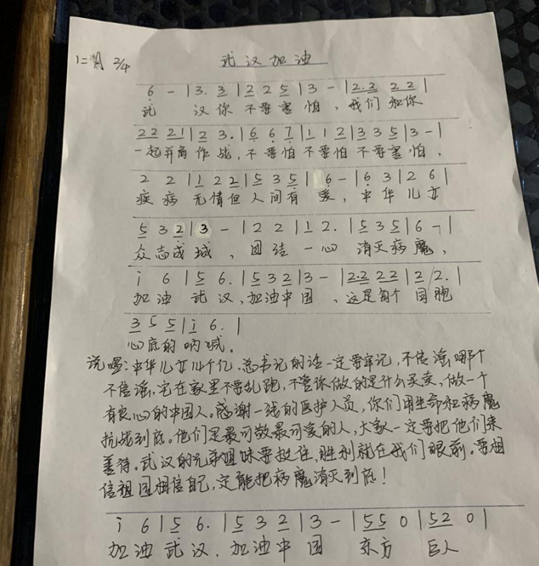 1=F 2/4 武汉加油
6 - | 3. 3 | 2 2 5 | 3 - | 2.2 2 2 |
武 汉你 不要害 怕，我们和你
2 2 2 1 | 2 3. | 6 6 7 | 1 1 2 | 3 3 5 | 3 - |
一起并肩作战，不要怕不要怕不要害怕，
2 2 | 1 2 2 | 5 3 5 | 6 - | 6 3 | 2 6 |
疾病无情但人间有爱，中华儿女
5 3 2 | 3 - | 2 2 | 1 2. | 5 3 5 | 6 - |
众志成城，团结一心 消灭病魔，
i 6 | 5 6. | 5 3 2 | 3 - | 2.2 2 2 | 2 2. |
加油 武汉，加油中国，这是每个同胞
3 5 5 | i 6. |
心底的呐喊。
说唱：中华儿女儿个亿，总书记的话一定要牢记，不信谣，哪个
不信谣，宅在家里不要乱跑，不管你做的是什么买卖，做一个
有良心的中国人，感谢一线的医护人员，你们用生命和病魔
抗战到底，他们是最可敬最可爱的人，大家一定要把他们来
善待，武汉的兄弟姐妹要挺住，胜利就在我们眼前，要相
信祖国相信自己，定能把病魔消灭到底！
i 6 | 5 6. | 5 3 2 | 3 - | 5 5 0 | 5 2 0 |
加油 武汉，加油中国 东方 巨人